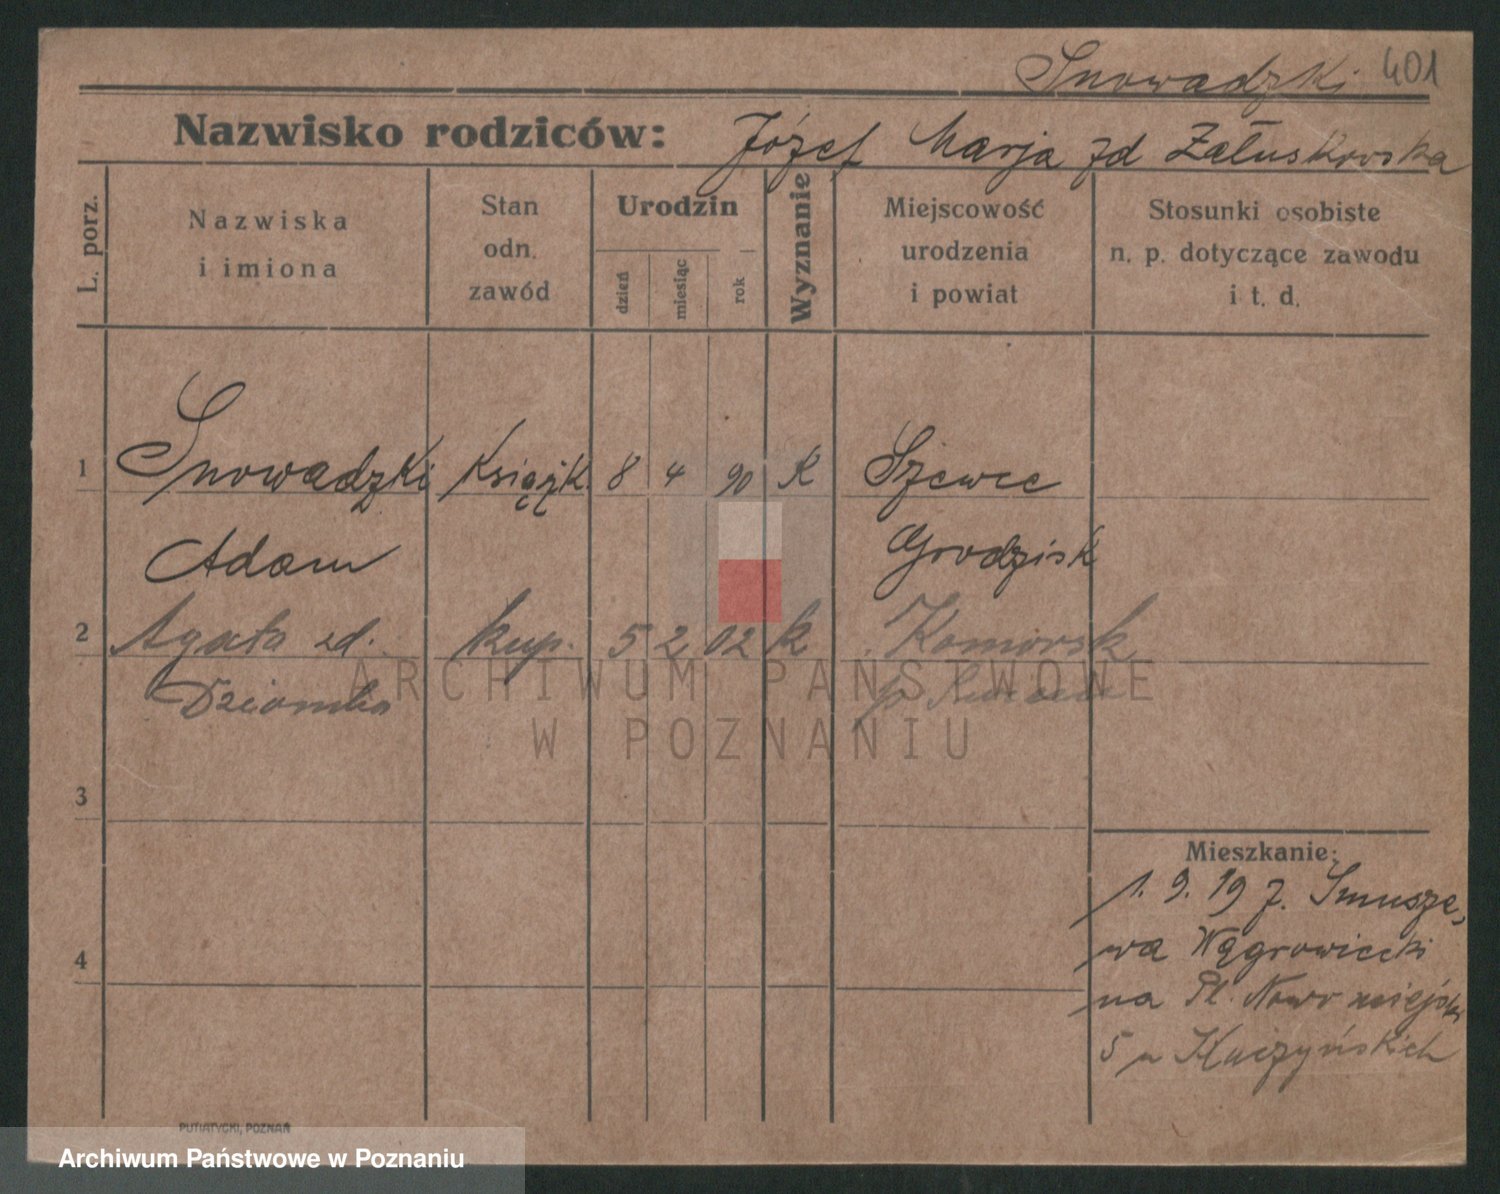 Snowadzki 401
Nazwisko rodziców: Józef Marja zd Załuskowska
L. porz.
Nazwiska
i imiona
Stan
odn.
zawód
Urodzin
dzień
miesiąc
rok
Wyznanie
Miejscowość
urodzenia
i powiat
Stosunki osobiste
n. p. dotyczące zawodu
i t. d.
1 Snowadzki Książk. 8 4 90 K Szewce
Adam Grodzisk
2 Agata zd. kup. 5 2 02 k Komorsk
Dziomba p
ARCHIWUM PAŃSTWOWE
W POZNANIU
3
Mieszkanie:
1. 9. 19 z. Smusze,
4 wa Wągrowiecki
na Pl. Nowo miejski
5 u Kuczyńskich
PUTIATYCKI, POZNAŃ
Archiwum Państwowe w Poznaniu